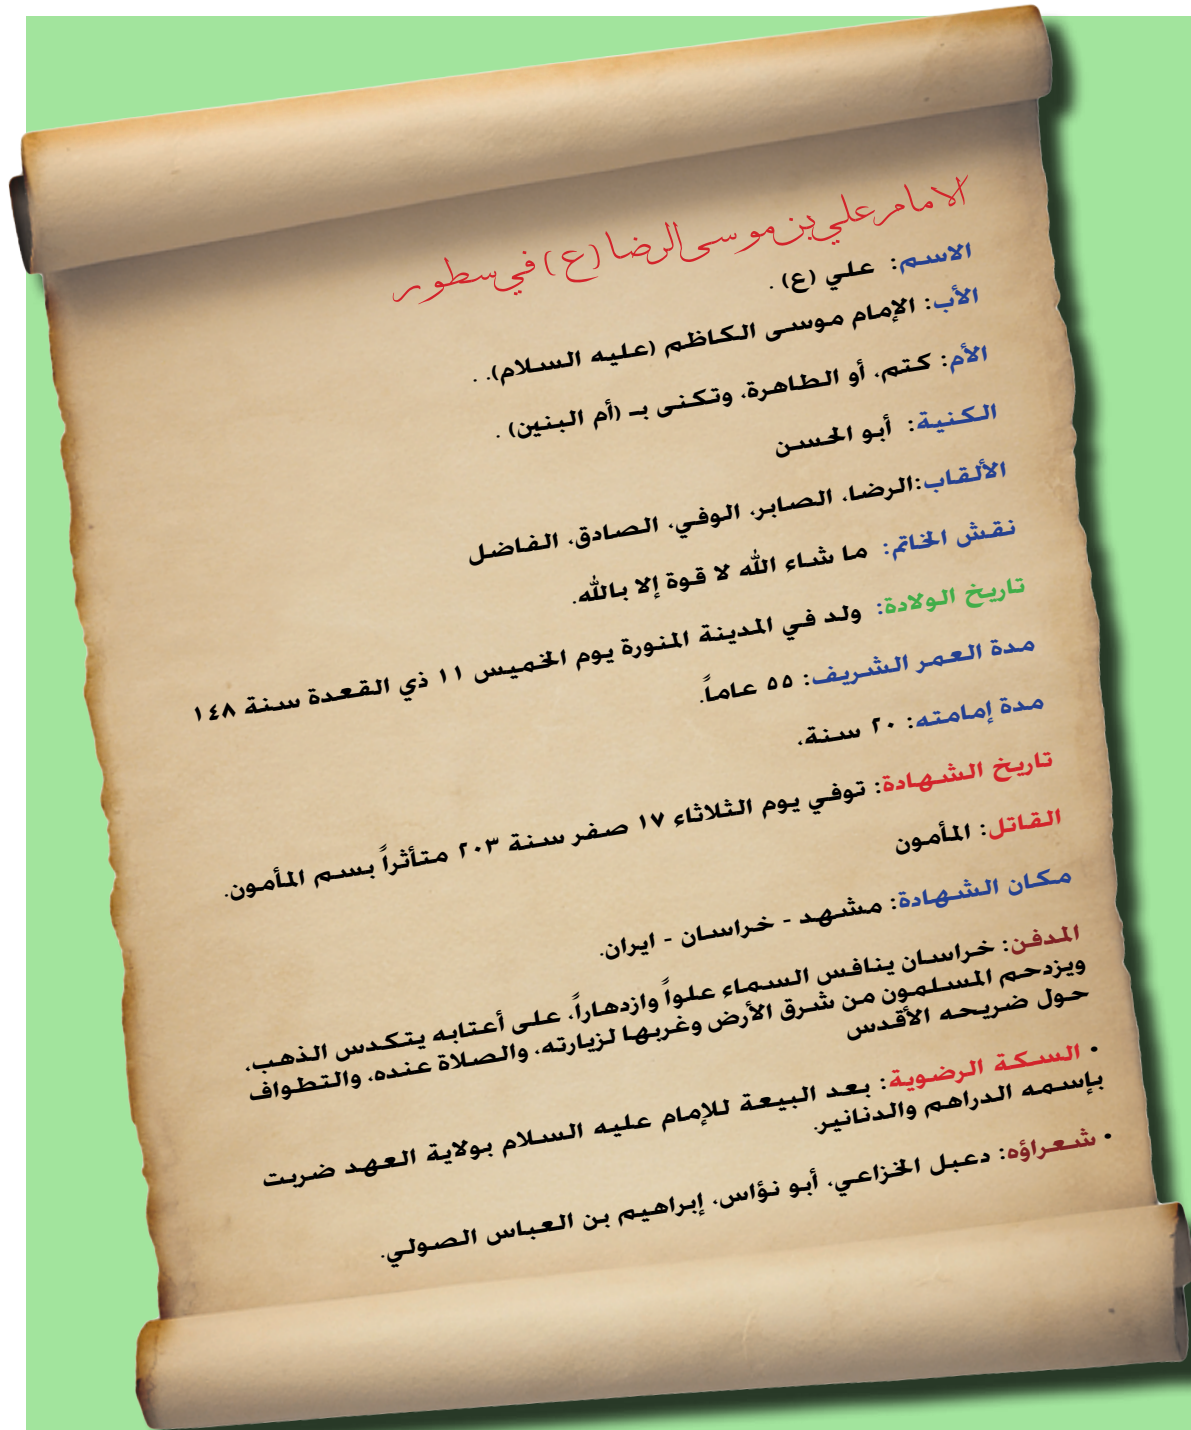 الامام علي بن موسى الرضا (ع) في سطور
الاسم: علي (ع) .
الأب: الإمام موسى الكاظم (عليه السلام). .
الأم: كتم، أو الطاهرة، وتكنى بـ (أم البنين) .
الكنية: أبو الحسن
الألقاب:الرضا، الصابر، الوفي، الصادق، الفاضل
نقش الخاتم: ما شاء الله لا قوة إلا بالله.
تاريخ الولادة: ولد في المدينة المنورة يوم الخميس ١١ ذي القعدة سنة ١٤٨
مدة العمر الشريف: ٥٥ عاماً.
مدة إمامته: ٢٠ سنة،
تاريخ الشهادة: توفي يوم الثلاثاء ١٧ صفر سنة ٢٠٣ متأثراً بسم المأمون.
القاتل: المأمون
مكان الشهادة: مشهد - خراسان - ايران.
المدفن: خراسان ينافس السماء علواً وازدهاراً، على أعتابه يتكدس الذهب،
ويزدحم المسلمون من شرق الأرض وغربها لزيارته، والصلاة عنده، والتطواف
حول ضريحه الأقدس
• السكة الرضوية: بعد البيعة للإمام عليه السلام بولاية العهد ضربت
بإسمه الدراهم والدنانير.
• شعراؤه: دعبل الخزاعي، أبو نؤاس، إبراهيم بن العباس الصولي.